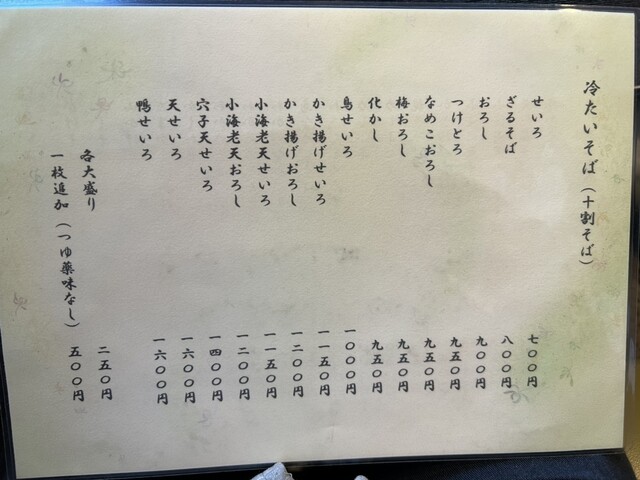 冷たいそば（十割そば）
せいろ 七〇〇円
ざるそば 八〇〇円
おろし 九〇〇円
つけとろ 九五〇円
なめこおろし 九五〇円
梅おろし 九五〇円
化かし 九五〇円
鳥せいろ 一〇〇〇円
かき揚げせいろ 一一五〇円
かき揚げおろし 一二〇〇円
小海老天せいろ 一一五〇円
小海老天おろし 一二〇〇円
穴子天せいろ 一四〇〇円
天せいろ 一六〇〇円
鴨せいろ 一六〇〇円
各大盛り 二五〇円
一枚追加（つゆ薬味なし） 五〇〇円